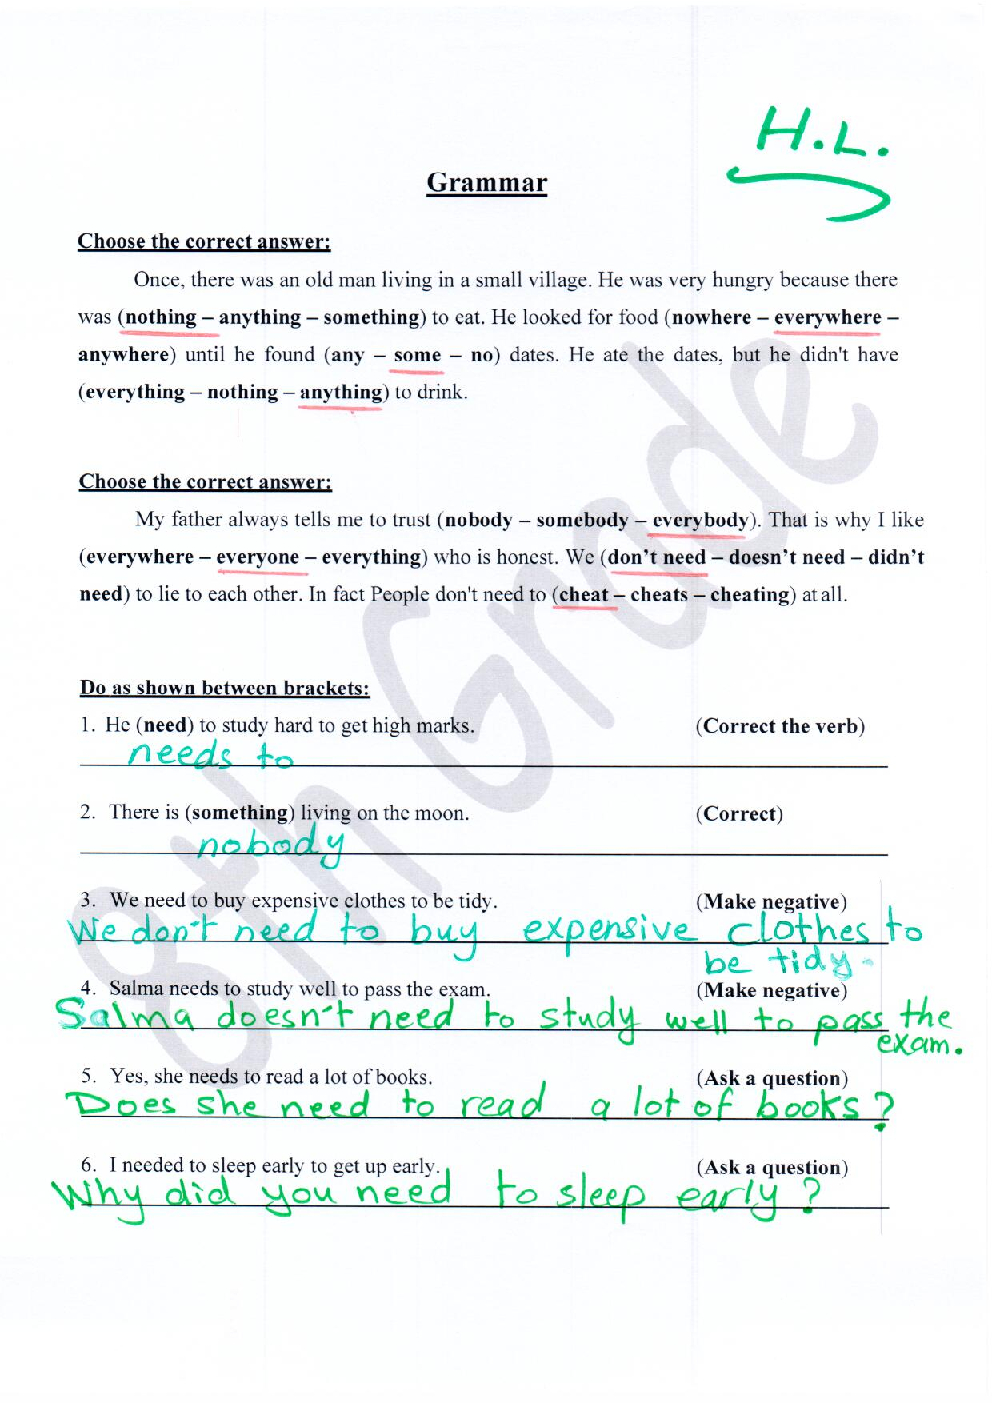 H.L.
Grammar
Choose the correct answer:
Once, there was an old man living in a small village. He was very hungry because there
was (nothing – anything – something) to eat. He looked for food (nowhere – everywhere –
anywhere) until he found (any – some – no) dates. He ate the dates, but he didn't have
(everything – nothing – anything) to drink.
Choose the correct answer:
My father always tells me to trust (nobody – somebody – everybody). That is why I like
(everywhere – everyone – everything) who is honest. We (don't need – doesn't need – didn't
need) to lie to each other. In fact People don't need to (cheat – cheats – cheating) at all.
Do as shown between brackets:
1. He (need) to study hard to get high marks. (Correct the verb)
needs to
2. There is (something) living on the moon. (Correct)
nobody
3. We need to buy expensive clothes to be tidy. (Make negative)
We don't need to buy expensive clothes to
be tidy.
4. Salma needs to study well to pass the exam. (Make negative)
Salma doesn't need to study well to pass the
exam.
5. Yes, she needs to read a lot of books. (Ask a question)
Does she need to read a lot of books?
6. I needed to sleep early to get up early. (Ask a question)
Why did you need to sleep early?
8th Grade